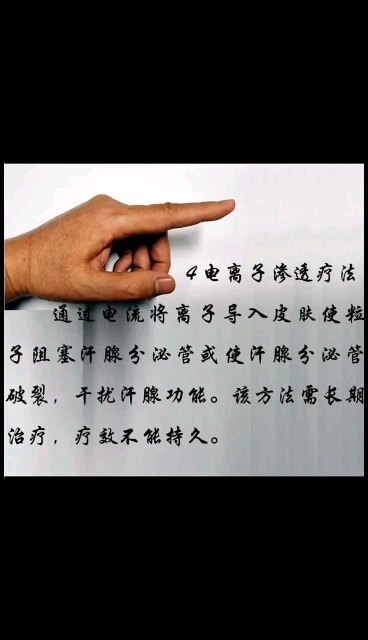 4电离子渗透疗法
通过电流将离子导入皮肤使粒
子阻塞汗腺分泌管或使汗腺分泌管
破裂，干扰汗腺功能。该方法需长期
治疗，疗效不能持久。